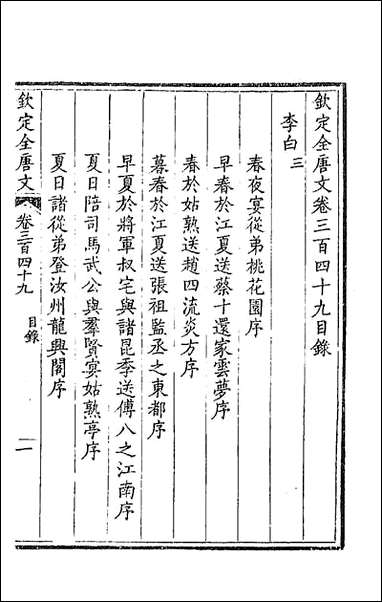 欽定全唐文卷三百四十九目錄
李白三
春夜宴從弟桃花園序
早春於江夏送蔡十還家雲夢序
春於姑熟送趙四流炎方序
暮春於江夏送張祖監丞之東都序
早夏於將軍叔宅與諸昆季送傅八之江南序
夏日陪司馬武公與羣賢宴姑熟亭序
夏日諸從弟登汝州龍興閣序
欽定全唐文 卷三百四十九 目錄 一